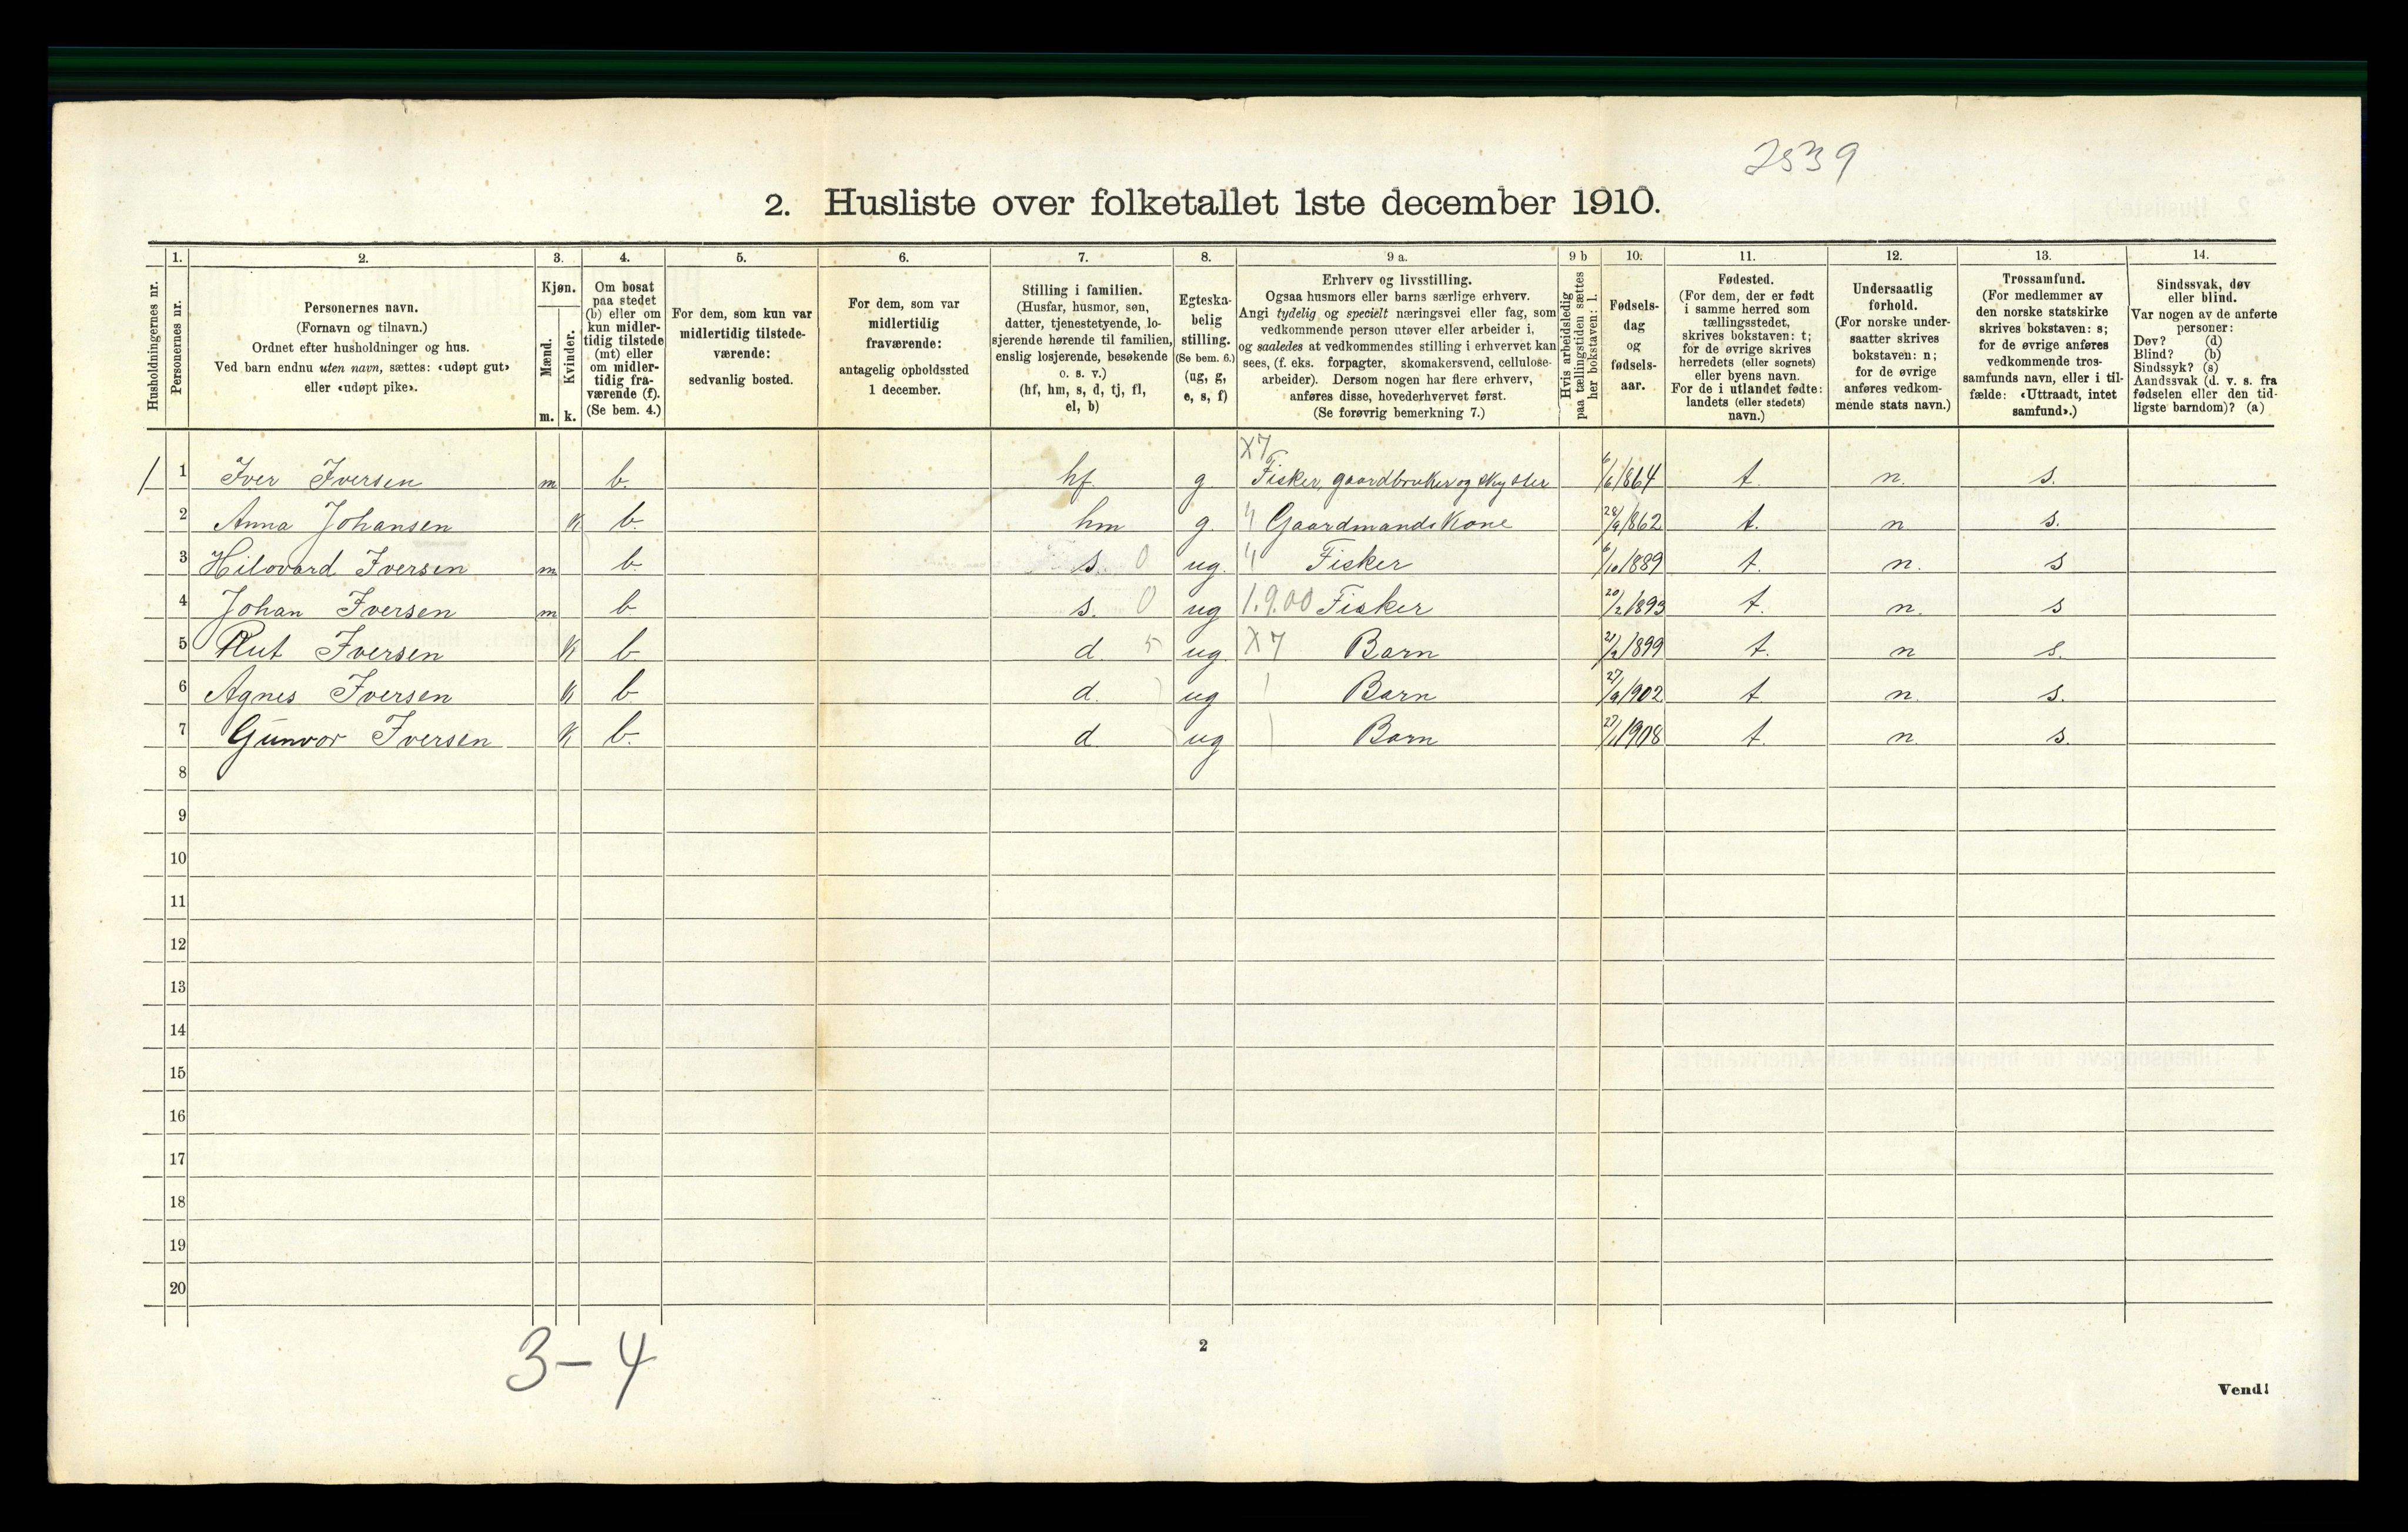 2539
2. Husliste over folketallet 1ste december 1910.
Husholdningernes nr.
1.
Personernes nr.
2.
Personernes navn.
(Fornavn og tilnavn.)
Ordnet efter husholdninger og hus.
Ved barn endnu uten navn, sættes: «udøpt gut»
eller «udøpt pike».
3.
Kjøn.
Mænd.
Kvinder.
m. k.
4.
Om bosat
paa stedet
(b) eller om
kun midler-
tidig tilstede
(mt) eller
om midler-
tidig fra-
værende (f).
(Se bem. 4.)
5.
For dem, som kun var
midlertidig tilstede-
værende:
sedvanlig bosted.
6.
For dem, som var
midlertidig
fraværende:
antagelig opholdssted
1 december.
7.
Stilling i familien.
(Husfar, husmor, søn,
datter, tjenestetyende, lo-
sjerende hørende til familien,
enslig losjerende, besøkende
o. s. v.)
(hf, hm, s, d, tj, fl,
el, b)
8.
Egteska-
belig
stilling.
(Se bem. 6.)
(ug, g,
e, s, f)
9 a.
Erhverv og livsstilling.
Ogsaa husmors eller barns særlige erhverv.
Angi tydelig og specielt næringsvei eller fag, som
vedkommende person utøver eller arbeider i,
og saaledes at vedkommendes stilling i erhvervet kan
sees, (f. eks. forpagter, skomakersvend, cellulose-
arbeider). Dersom nogen har flere erhverv,
anføres disse, hovederhvervet først.
(Se forøvrig bemerkning 7.)
9 b
Hvis arbeidsledig
paa tællingstiden sættes
her bokstaven: l.
10.
Fødsels-
dag
og
fødsels-
aar.
11.
Fødested.
(For dem, der er født
i samme herred som
tællingsstedet,
skrives bokstaven: t;
for de øvrige skrives
herredets (eller sognets)
eller byens navn.
For de i utlandet fødte:
landets (eller stedets)
navn.)
12.
Undersaatlig
forhold.
(For norske under-
saatter skrives
bokstaven: n;
for de øvrige
anføres vedkom-
mende stats navn.)
13.
Trossamfund.
(For medlemmer av
den norske statskirke
skrives bokstaven: s;
for de øvrige anføres
vedkommende tros-
samfunds navn, eller i til-
fælde: «Uttraadt, intet
samfund».)
14.
Sindssvak, døv
eller blind.
Var nogen av de anførte
personer:
Døv? (d)
Blind? (b)
Sindssyk? (s)
Aandssvak (d. v. s. fra
fødselen eller den tid-
ligste barndom)? (a)
X7
1 1 Iver Iversen m b. hf. g. Fisker, gaardbruker og skyster 6/6 1864 t. n. s.
2 Anna Johansen k b. hm g. " Gaardmandskone 28/9 1862 t. n s.
3 Hilovard Iversen m b. s. 0 ug. " Fisker 6/10 1889 t. n. s
4 Johan Iversen m b s. 0 ug 1.9.00 Fisker 20/2 1893 t. n. s
5 Rut Iversen k b. d. 5 ug. X7 Barn 21/2 1899 t. n s.
6 Agnes Iversen k b. d. ug Barn 27/9 1902 t. n. s.
7 Gunvor Iversen k b. d ug Barn 27/1 1908 t. n. s.
8
9
10
11
12
13
14
15
16
17
18
19
20
3-4
2
Vend!